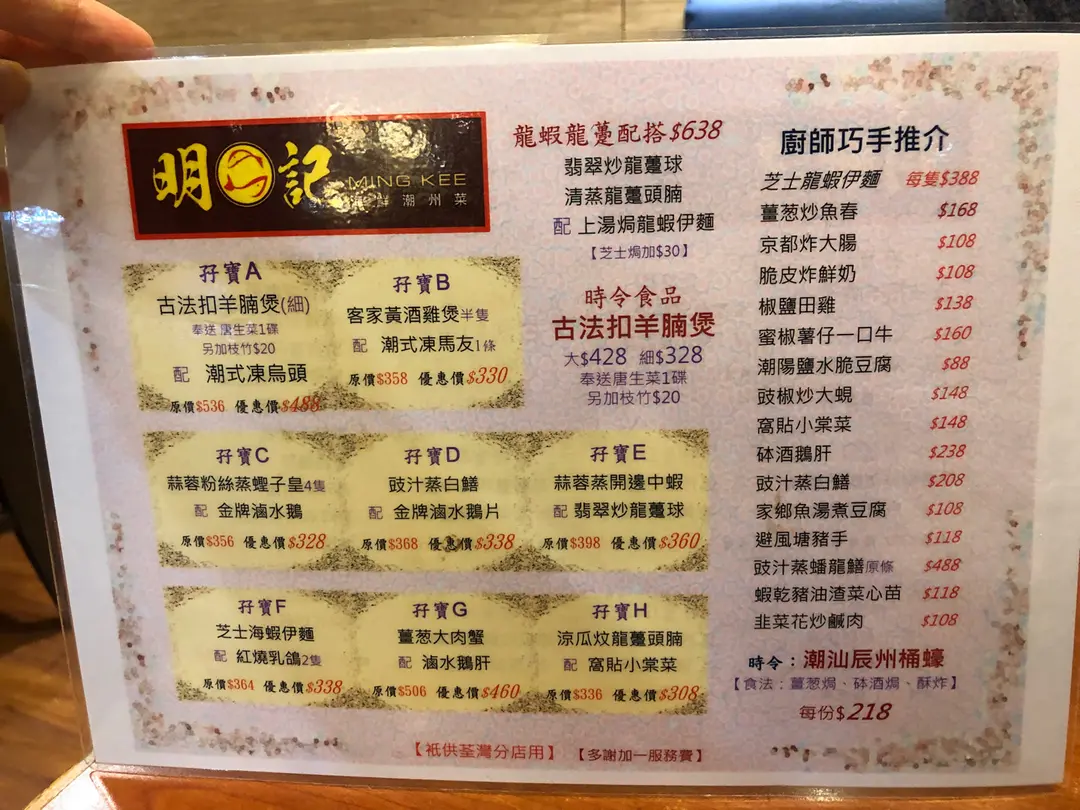 明記
MING KEE
海鮮潮州菜
孖寶A
古法扣羊腩煲(細)
奉送 唐生菜1碟
另加枝竹$20
配 潮式凍烏頭
原價$536 優惠價$488
孖寶B
客家黃酒雞煲半隻
配 潮式凍馬友1條
原價$358 優惠價$330
孖寶C
蒜蓉粉絲蒸蟶子皇4隻
配 金牌滷水鵝
原價$356 優惠價$328
孖寶D
豉汁蒸白鱔
配 金牌滷水鵝片
原價$368 優惠價$338
孖寶E
蒜蓉蒸開邊中蝦
配 翡翠炒龍躉球
原價$398 優惠價$360
孖寶F
芝士海蝦伊麵
配 紅燒乳鴿2隻
原價$364 優惠價$338
孖寶G
薑葱大肉蟹
配 滷水鵝肝
原價$506 優惠價$460
孖寶H
涼瓜炆龍躉頭腩
配 窩貼小棠菜
原價$336 優惠價$308
龍蝦龍躉配搭$638
翡翠炒龍躉球
清蒸龍躉頭腩
配 上湯焗龍蝦伊麵
【芝士焗加$30】
時令食品
古法扣羊腩煲
大$428 細$328
奉送唐生菜1碟
另加枝竹$20
廚師巧手推介
芝士龍蝦伊麵 每隻$388
薑葱炒魚春 $168
京都炸大腸 $108
脆皮炸鮮奶 $108
椒鹽田雞 $138
蜜椒薯仔一口牛 $160
潮陽鹽水脆豆腐 $88
豉椒炒大蜆 $148
窩貼小棠菜 $148
砵酒鵝肝 $238
豉汁蒸白鱔 $208
家鄉魚湯煮豆腐 $108
避風塘豬手 $118
豉汁蒸蟠龍鱔原條 $488
蝦乾豬油渣菜心苗 $118
韭菜花炒鹹肉 $108
時令：潮汕辰州桶蠔
【食法：薑葱焗、砵酒焗、酥炸】
每份$218
【祇供荃灣分店用】 【多謝加一服務費】